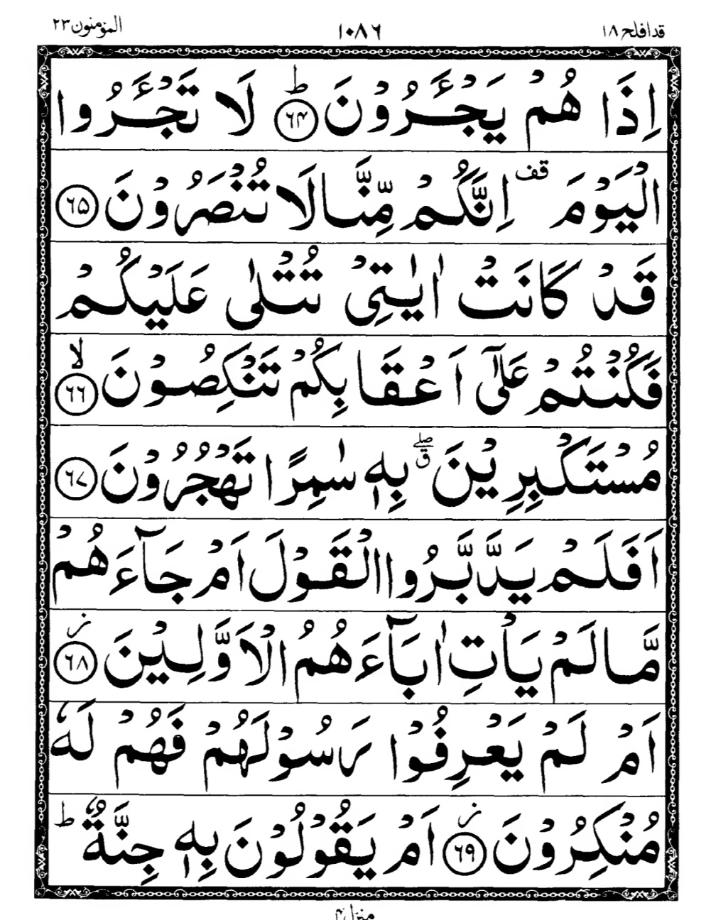 قدافلح ١٨ ١٠٨٦ المؤمنون ٢٣
اِذَا هُمْ يَجْـَٔرُوْنَ ؕ ﴿٦٤﴾ لَا تَجْـَٔرُوا
الْيَوْمَ ۫ قف اِنَّكُمْ مِّنَّا لَا تُنْصَرُوْنَ ﴿٦٥﴾
قَدْ كَانَتْ اٰيٰتِيْ تُتْلٰى عَلَيْكُمْ
فَكُنْتُمْ عَلٰٓى اَعْقَابِكُمْ تَنْكِصُوْنَ ۙ ﴿٦٦﴾
مُسْتَكْبِرِيْنَ ۖۗ بِهٖ سٰمِرًا تَهْجُرُوْنَ ﴿٦٧﴾
اَفَلَمْ يَدَّبَّرُوا الْقَوْلَ اَمْ جَآءَهُمْ
مَّا لَمْ يَاْتِ اٰبَآءَهُمُ الْاَوَّلِيْنَ ؗ ﴿٦٨﴾
اَمْ لَمْ يَعْرِفُوْا رَسُوْلَهُمْ فَهُمْ لَهٗ
مُنْكِرُوْنَ ؗ ﴿٦٩﴾ اَمْ يَقُوْلُوْنَ بِهٖ جِنَّةٌ ؕ
منزل ٤